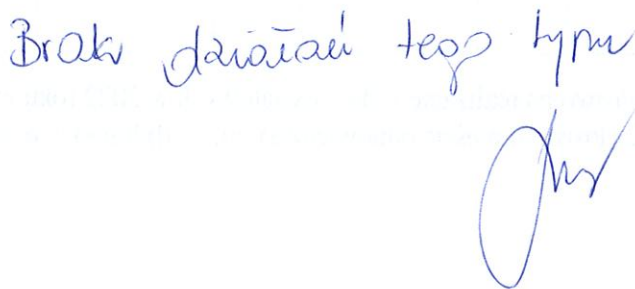 Brak działań tego typu